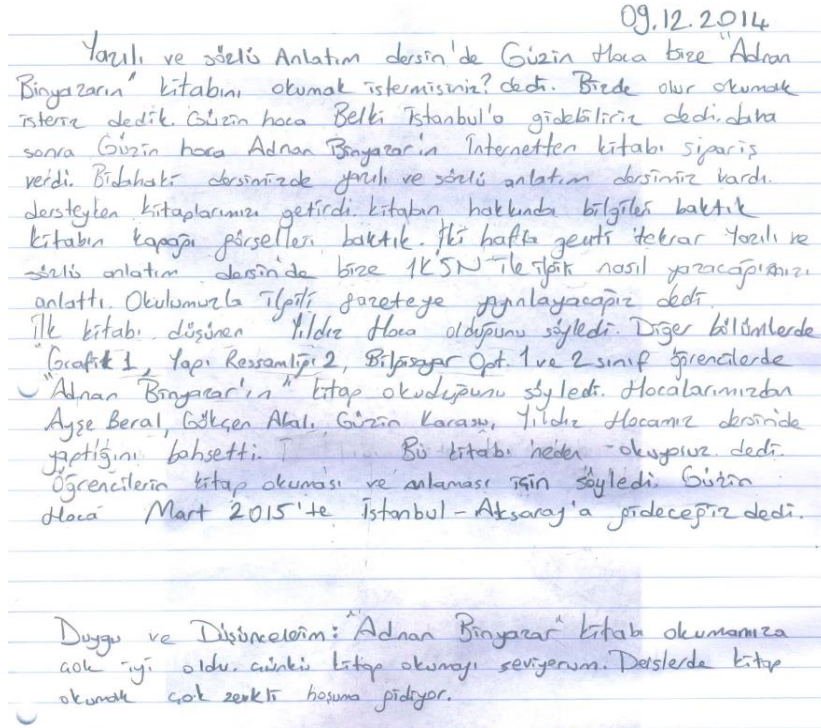 09.12.2014
Yazılı ve sözlü Anlatım dersin'de Güzin Hoca bize "Adnan
Binyazarın" kitabını okumak istermisiniz? dedi. Bizde olur okumak
isteriz dedik. Güzin hoca Belki İstanbul'a gidebiliriz dedi. daha
sonra Güzin hoca Adnan Binyazar'ın İnternetten kitabı sipariş
verdi. Bidahaki dersimizde yazılı ve sözlü anlatım dersimiz vardı.
dersteyken kitaplarımızı getirdi. kitabın hakkında bilgileri baktık
kitabın kapağı görselleri baktık. İki hafta geçti tekrar Yazılı ve
sözlü anlatım dersin'de bize 1K5N ile ilgili nasıl yazacağımızı
anlattı. Okulumuzla ilgili gazeteye yayınlayacağız dedi.
İlk kitabı düşünen Yıldız Hoca olduğunu söyledi. Diğer bölümlerde
"Grafik 1, Yapı Ressamlığı 2, Bilgisayar Opt. 1 ve 2 sınıf öğrencilerde
"Adnan Binyazar'ın" kitap okuduğunu söyledi. Hocalarımızdan
Ayşe Beral, Gökçen Akalı, Güzin Karasu, Yıldız Hocamız dersinide
yaptığını bahsetti. Bu kitabı neden okuyoruz dedi.
Öğrencilerin kitap okuması ve anlaması için söyledi. Güzin
Hoca Mart 2015'te İstanbul - Aksaray'a gideceğiz dedi.
Duygu ve Düşüncelerim: "Adnan Binyazar" kitabı okumamıza
çok iyi oldu. Çünkü kitap okumayı seviyorum. Derslerde kitap
okumak çok zevkli hoşuma gidiyor.